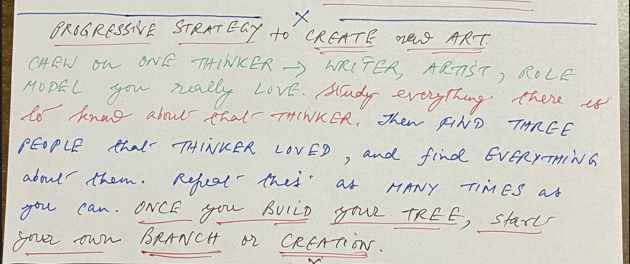 PROGRESSIVE STRATEGY to CREATE new ART.
CHEW on ONE THINKER → WRITER, ARTIST, ROLE
MODEL you really LOVE. Study everything there is
to know about that THINKER. Then FIND THREE
PEOPLE that THINKER LOVED, and find EVERYTHING
about them. Repeat this as MANY TIMES as
you can. ONCE you BUILD your TREE, start
your own BRANCH or CREATION.